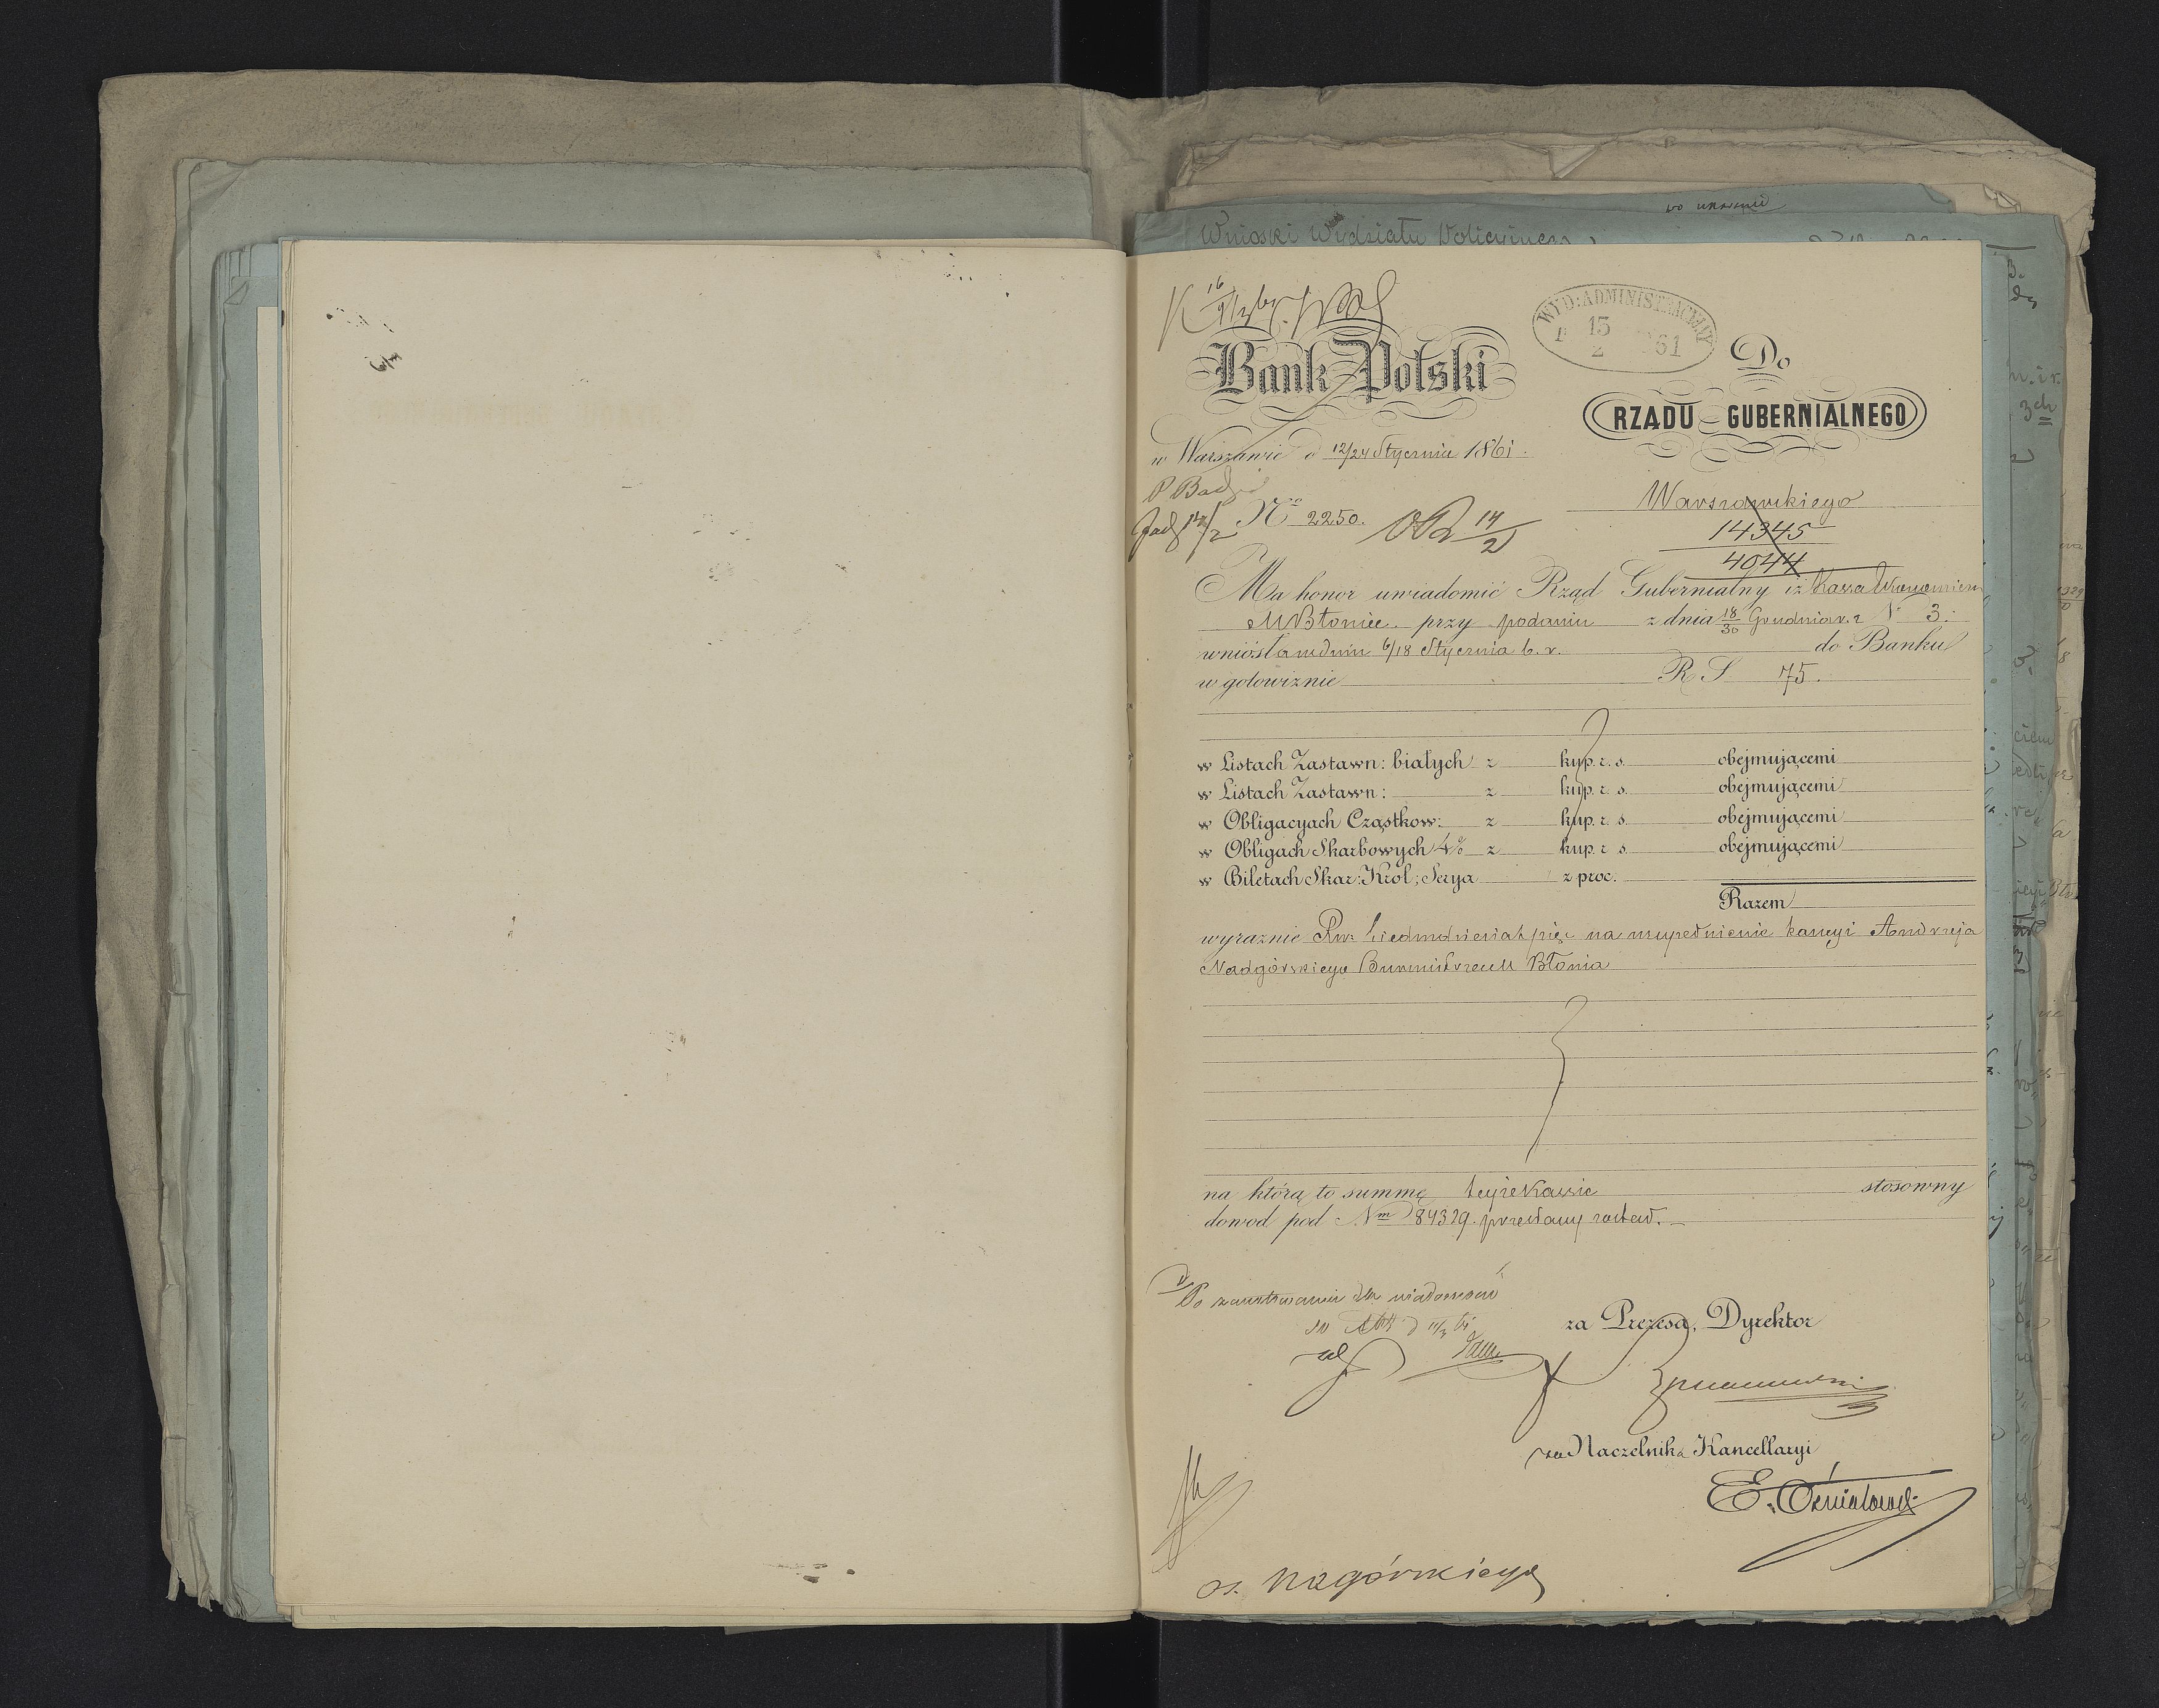 Wnioski Wydziału Policyjnego
WYD: ADMINISTRACYJNY
15
2
61
Bank Polski
Do
RZĄDU GUBERNIALNEGO
w Warszawie d 12/24 Stycznia 1861.
Warszawskiego
No 2250.
14
2
14345
4044
Ma honor uwiadomić Rząd Gubernialny iż Kassa Ekonomiczn
M Błonie przy podaniu z dnia 18/30 Grudnia r. z No 3.
wniosła w dniu 6/18 Stycznia b. r. do Banku
w gotowiznie R S 75.
w Listach Zastawn: białych z kup. r. s. obejmującemi
w Listach Zastawn: z kup. r. s. obejmującemi
w Obligacyach Cząstkow: z kup. r. s. obejmującemi
w Obligach Skarbowych 4% z kup. r. s. obejmującemi
w Biletach Skar: Krol; Serya z proc.
Razem
wyraznie Rsr. Siedmdziesiąt pięć na uzupełnienie kaucyi Andrzeja
Nadgórskiego Burmistrza M Błonia
na którą to summę tejże Kassie stosowny
dowod pod Nm 84329 przesłany został.
Do zanotowania dla wiadomości
za Prezesa, Dyrektor
za Naczelnika Kancellaryi
os. Nagórskiego